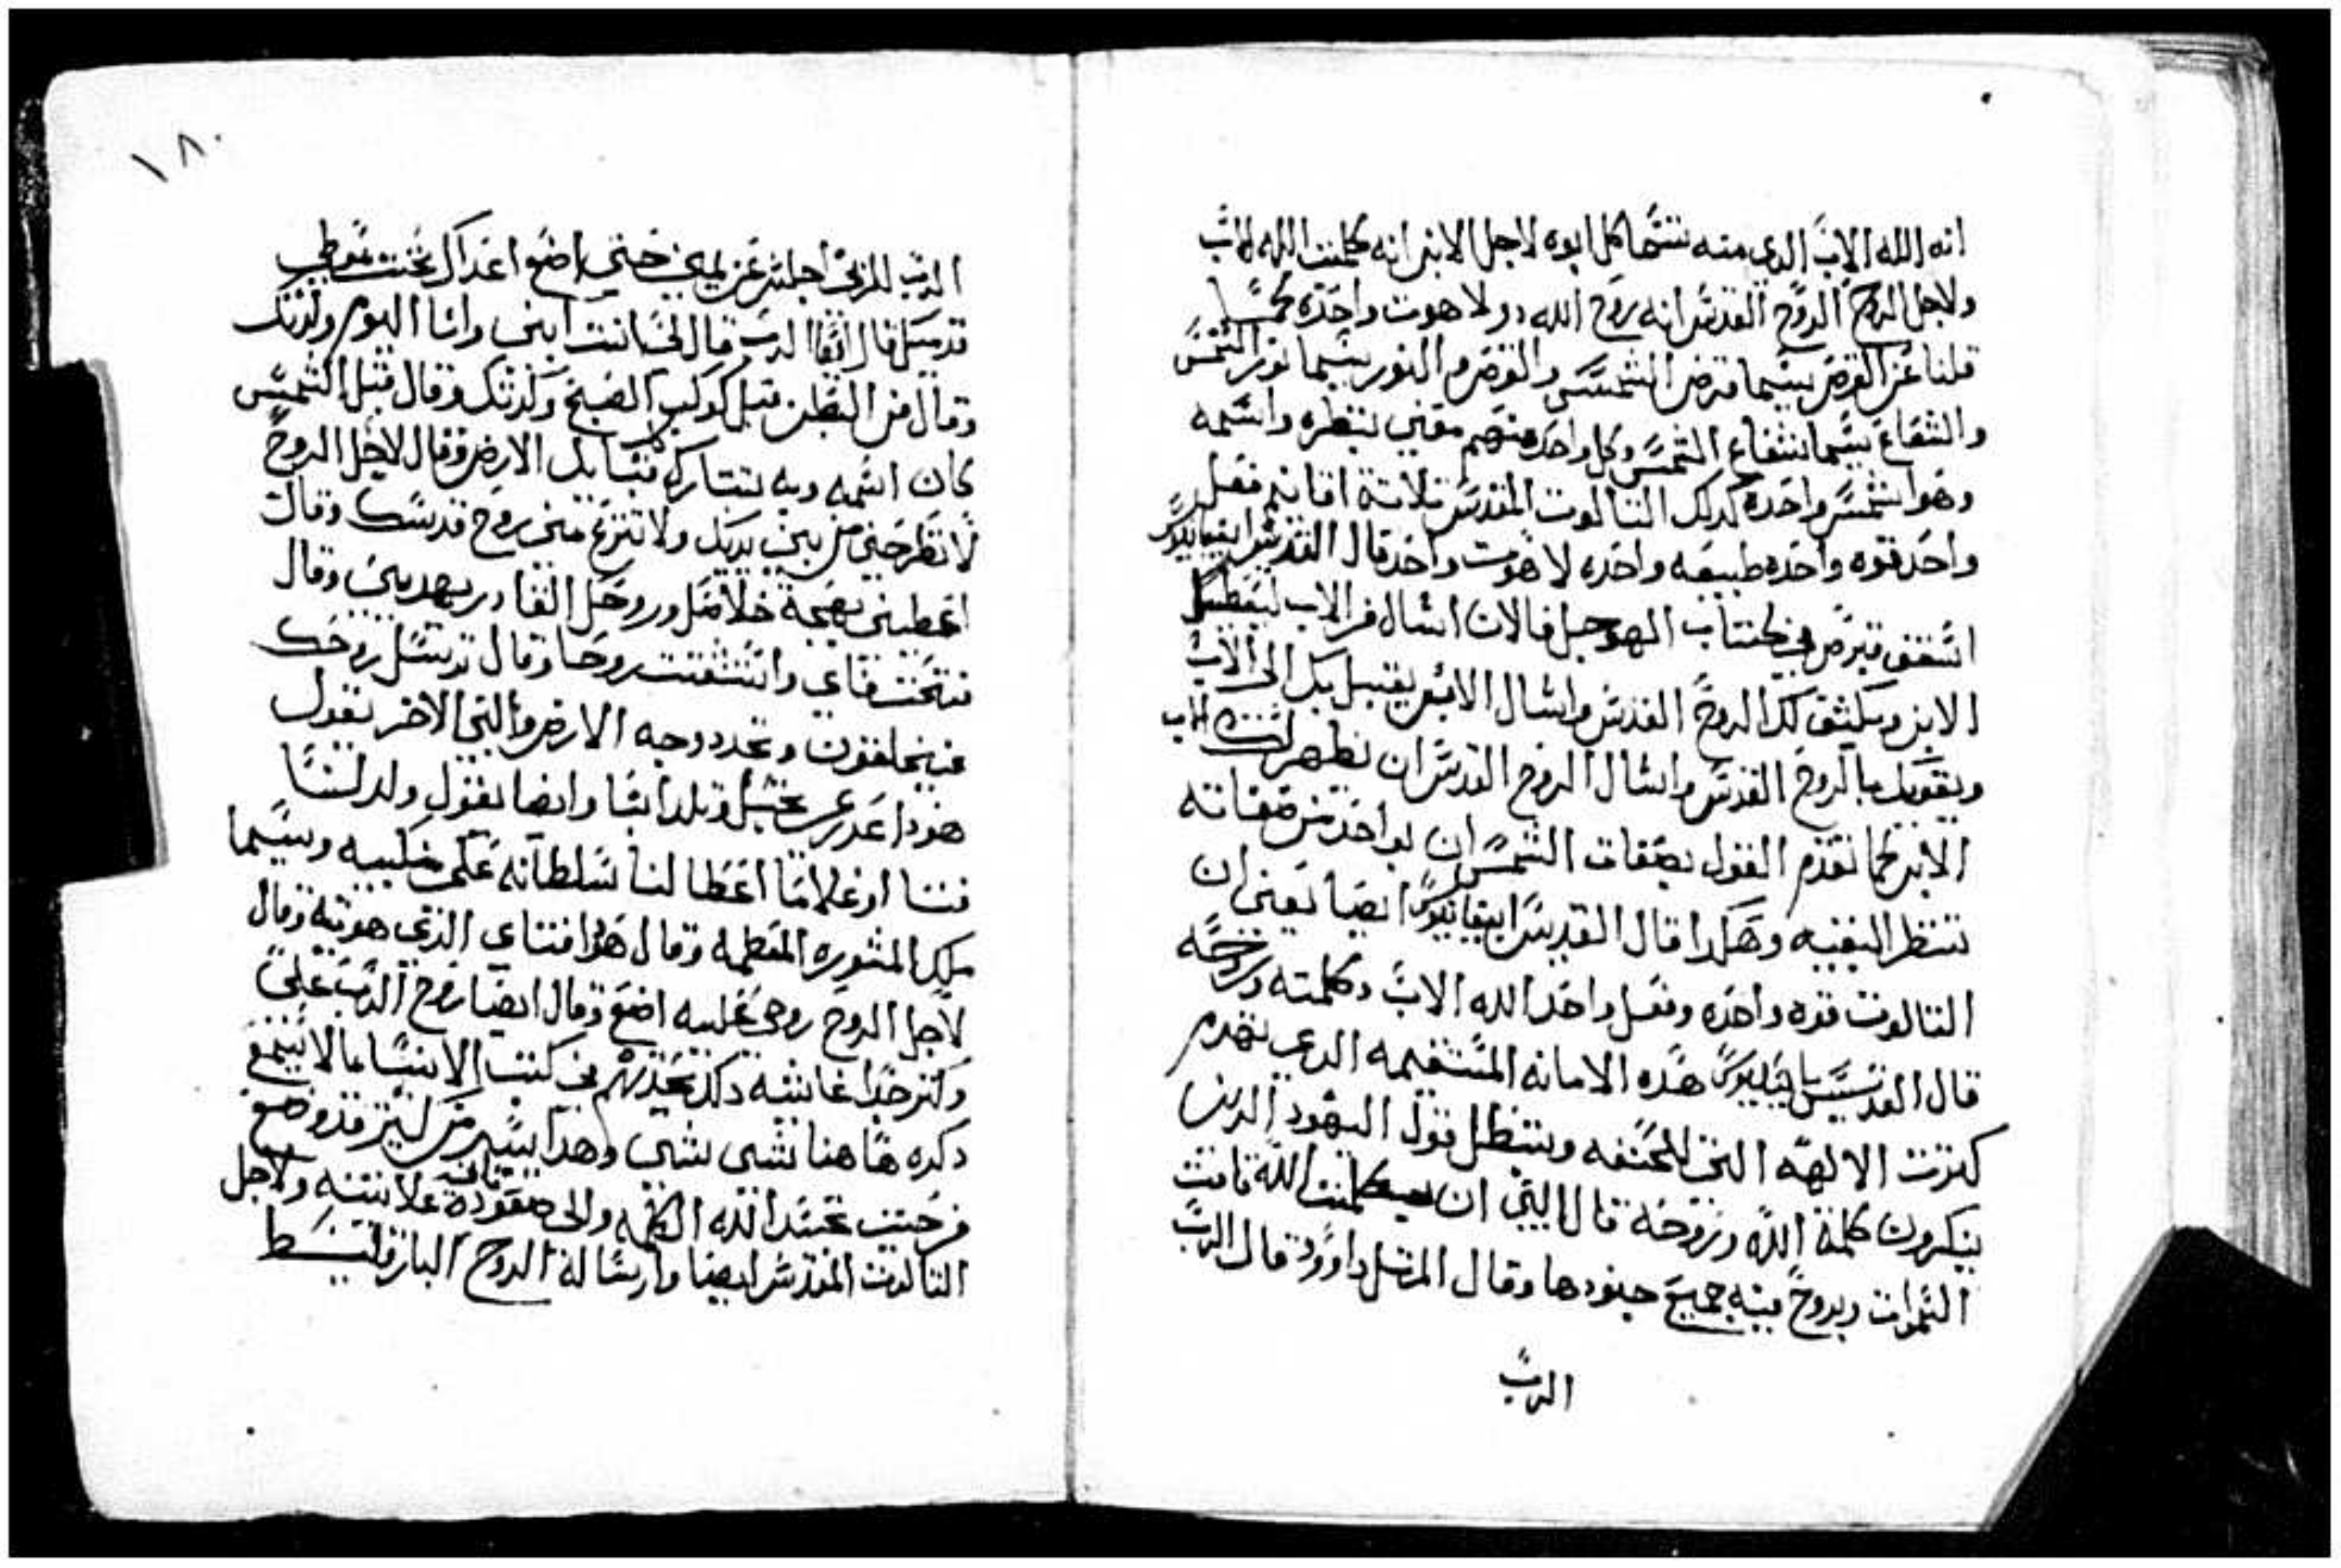 انه الله الاب الدي منه تتسما كل ابوه لاجل الابن انه كلمت الله الاب
ولاجل الروح الروح القدس انه روح الله دو لاهوت واحده كما
قلنا عن القرص يسما قرص الشمس والقرص والنور يسما نور الشمس
والشعاع يسما شعاع الشمس وكل واحد منهم معني بنظره واسمه
وهو شمس واحده كدلك التالوت المقدس تلاتة اقانيم فعل
واحد قوه واحده طبيعه واحده لاهوت واحد قال القديس ابيفانيوس
اسقف قبرص في كتاب الهوجل فالان اسال من الاب ليعطيك
الابن ويكشف لك الروح القدس واسال الابن يقبل بك الى الاب
ويقويك بالروح القدس واسال الروح القدس ان يظهر لك الاب
الابن كما تقدم القول بصفات الشمس ان بواحد من صفاته
تنظر البقيه وهكدا قال القديس ابيفانيوس ايضا يعني ان
التالوت قوه واحده وفعل واحد الله الاب وكلمته وروحه
قال القديس باسيليوس هده الامانه المستقيمه الدي تهدم
كترت الالهه التي للحنفه ويبطل قول اليهود الدين
ينكرون كلمة الله وروحه قال النبي ان بكلمت الله قامت
السموات وبروح فيه جميع جنودها وقال المرتل داوود قال الرب
الرب
١٨٠
الرب لربي اجلس عن يميني حتي اضع اعداك تحت موطي
قدميك قال ايضا الرب قال لي انت ابني وانا اليوم ولدتك
وقال من البطن قبل كوكب الصبح ولدتك وقال قبل الشمس
كان اسمه وبه تتبارك قبايل الارض وقال لاجل الروح
لا تطرحني من بين يديك ولا تنزع مني روح قدسك وقال
اعطيني بهجة خلاصك وروحك القادر يهديني وقال
فتحت فاي واستنشقت روحا وقال ترسل روحك
فيخلقون وتجدد وجه الارض والنبي الاخر يقول
هودا عدري تحبل وتلد ابنا وايضا يقول ولد لنا
فتا او غلاما اعطا لنا سلطانه على منكبيه ويسما
ملاك المشوره العظمه وقال هودا فتاي الدي هويته وقال
لاجل الروح روحي عليه اضع وقال ايضا روح الرب علي
وكتر جدا غايته دكد تجدهم في كتب الانبيا ما لا يسع
دكره هاهنا شي شي وهدا يسير من كتير قد وضع
فرحت تجسد الله الكلمه والى صعوده قاله علانيته ولاجل
التالوت المقدس ايضا وارساله الروح البارقليط